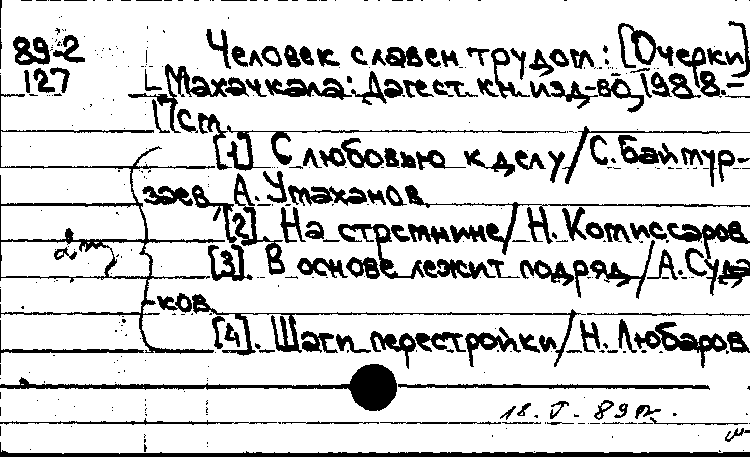 89-2 Человек славен трудом: [Очерки]
127 – Махачкала: Дагест. кн. изд-во, 1988.–
17 ст.
[1] С любовью к делу / С. Баймур-
заев, А. Умаханов.
[2]. На стремнине / Н. Комиссаров
[3]. В основе лежит подряд / А. Суда
-ков.
[4]. Шаги перестройки / Н. Любаров
18. V. 89г.